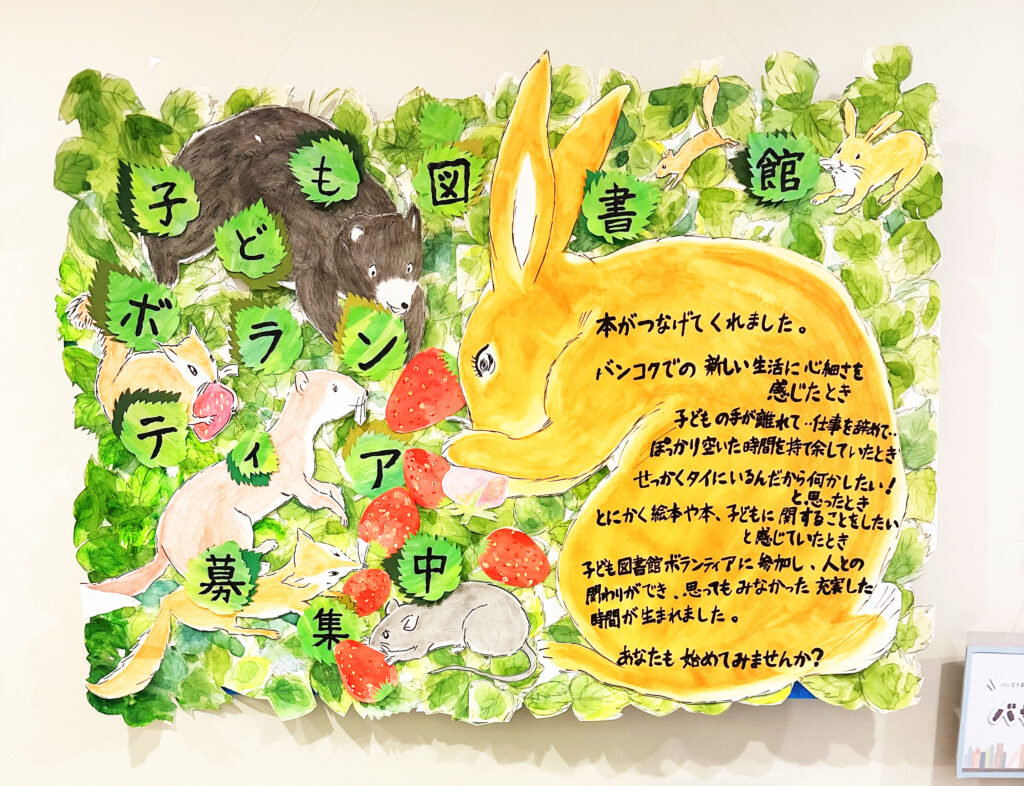 子ども図書館
ボランティア
募集中
本がつなげてくれました。
バンコクでの 新しい生活に心細さを
感じたとき
子どもの手が離れて‥仕事を辞めて‥
ぽっかり空いた時間を持て余していたとき
せっかくタイにいるんだから何かしたい!
と思ったとき
とにかく絵本や本、子どもに関することをしたい
と感じていたとき
子ども図書館ボランティアに参加し、人との
関わりができ、思ってもみなかった充実した
時間が生まれました。
あなたも始めてみませんか?
バンコク